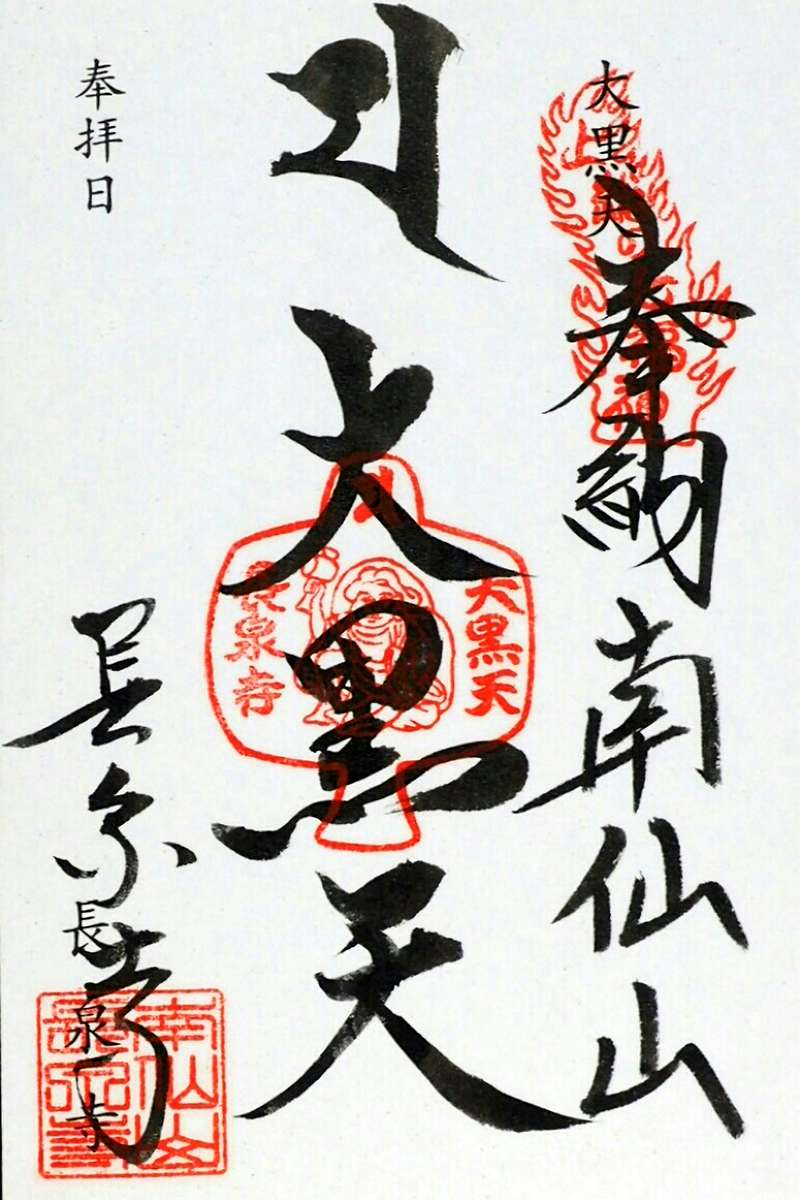 大黒天
奉納 南仙山
大黒天
大黒天
長泉寺
長泉寺
長泉寺
奉拝日
南仙山
長泉寺